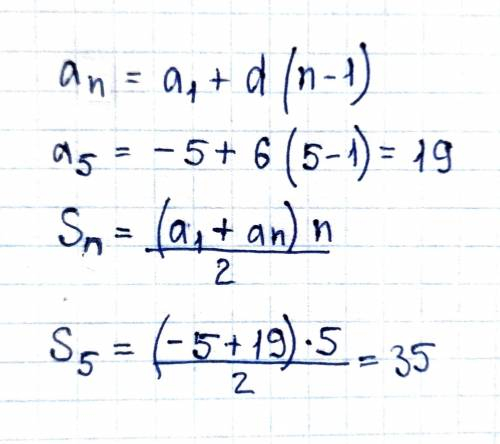 aₙ = a₁ + d (n-1)
a₅ = -5 + 6 (5-1) = 19
Sₙ = (a₁ + aₙ) n / 2
S₅ = (-5 + 19) · 5 / 2 = 35